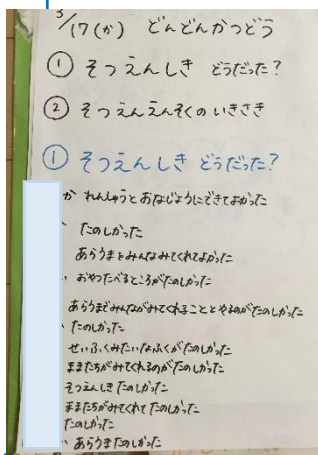 3/17(か) どんどんかつどう
① そつえんしき どうだった?
② そつえんえんそくのいきさき
① そつえんしき どうだった?
か れんしゅうとおなじようにできてよかった
たのしかった
あらうまをみんなみてくれてよかった
おやつたべるところがたのしかった
あらうまでみんながみてくれることとやるのがたのしかった
たのしかった
せいふくみたいなふくがたのしかった
ままたちがみてくれるのがたのしかった
そつえんしきたのしかった
ままたちがみてくれてたのしかった
たのしかった
あらうまたのしかった